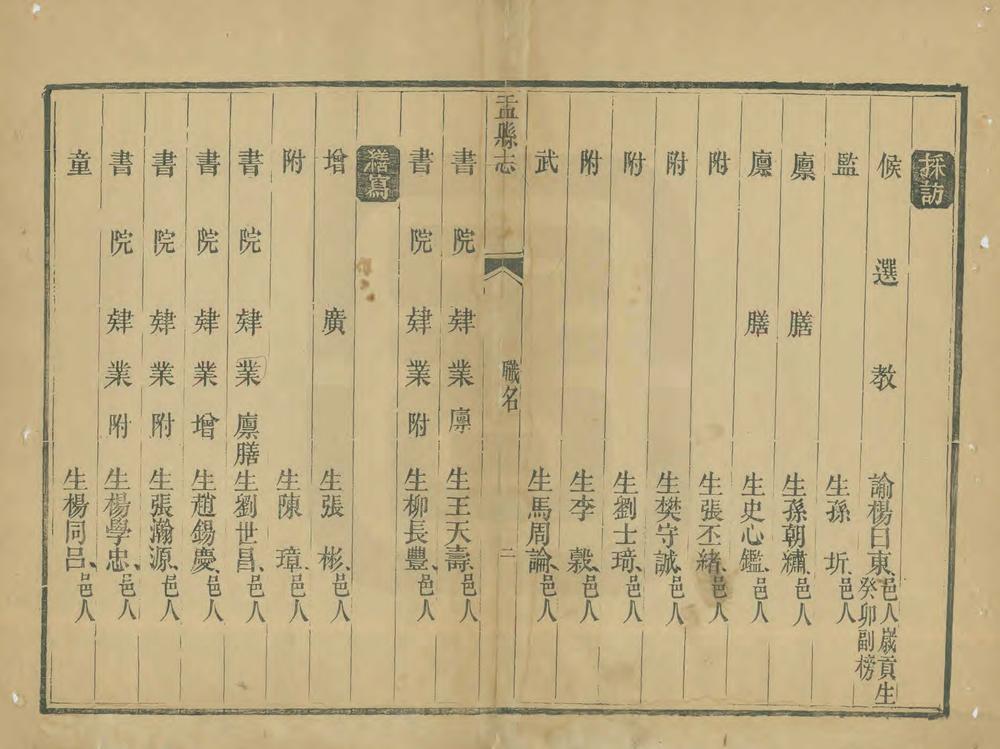 採訪
候選教諭楊曰東邑人歲貢生癸卯副榜
監生孫圻邑人
廪膳生孫朝繡邑人
廪膳生史心鑑邑人
附生張丕緒邑人
附生樊守誠邑人
附生劉士琦邑人
附生李穀邑人
武生馬周論邑人
盂縣志 職名 二
書院肄業廪生王天壽邑人
書院肄業附生柳長豐邑人
繕寫
增廣生張彬邑人
附生陳璋邑人
書院肄業廪膳生劉世昌邑人
書院肄業增生趙錫慶邑人
書院肄業附生張瀚源邑人
書院肄業附生楊學忠邑人
童生楊同呂邑人